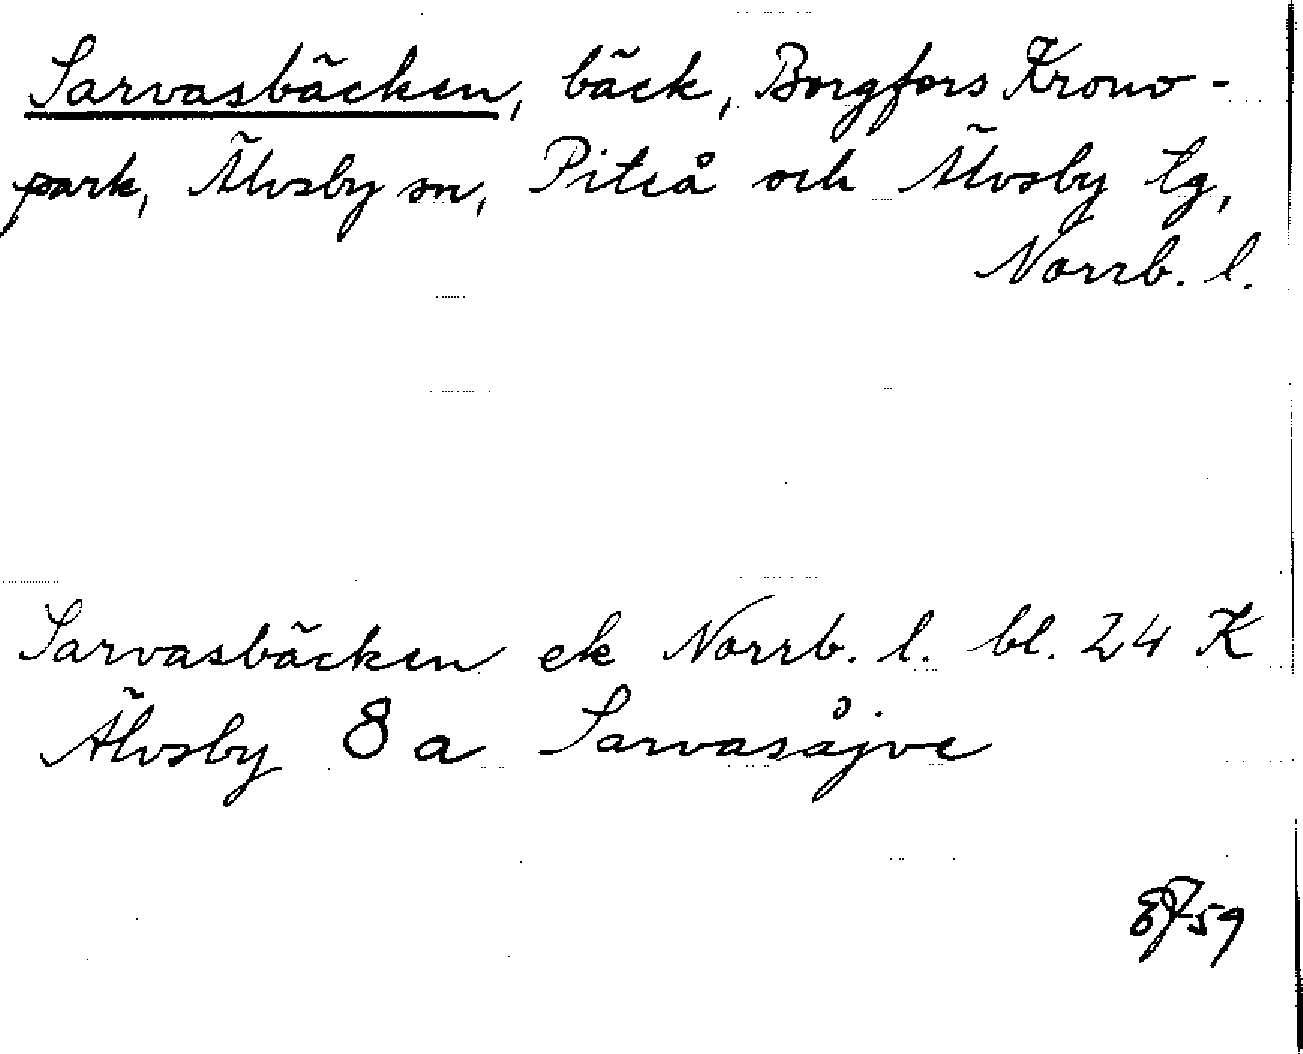 Sarvasbäcken, bäck, Borgfors Krono-
park, Älvsby sn, Piteå och Älvsby tg,
Norrb. l.
Sarvasbäcken ek Norrb. l. bl. 24 K
Älvsby 8 a Sarvasåjve
59